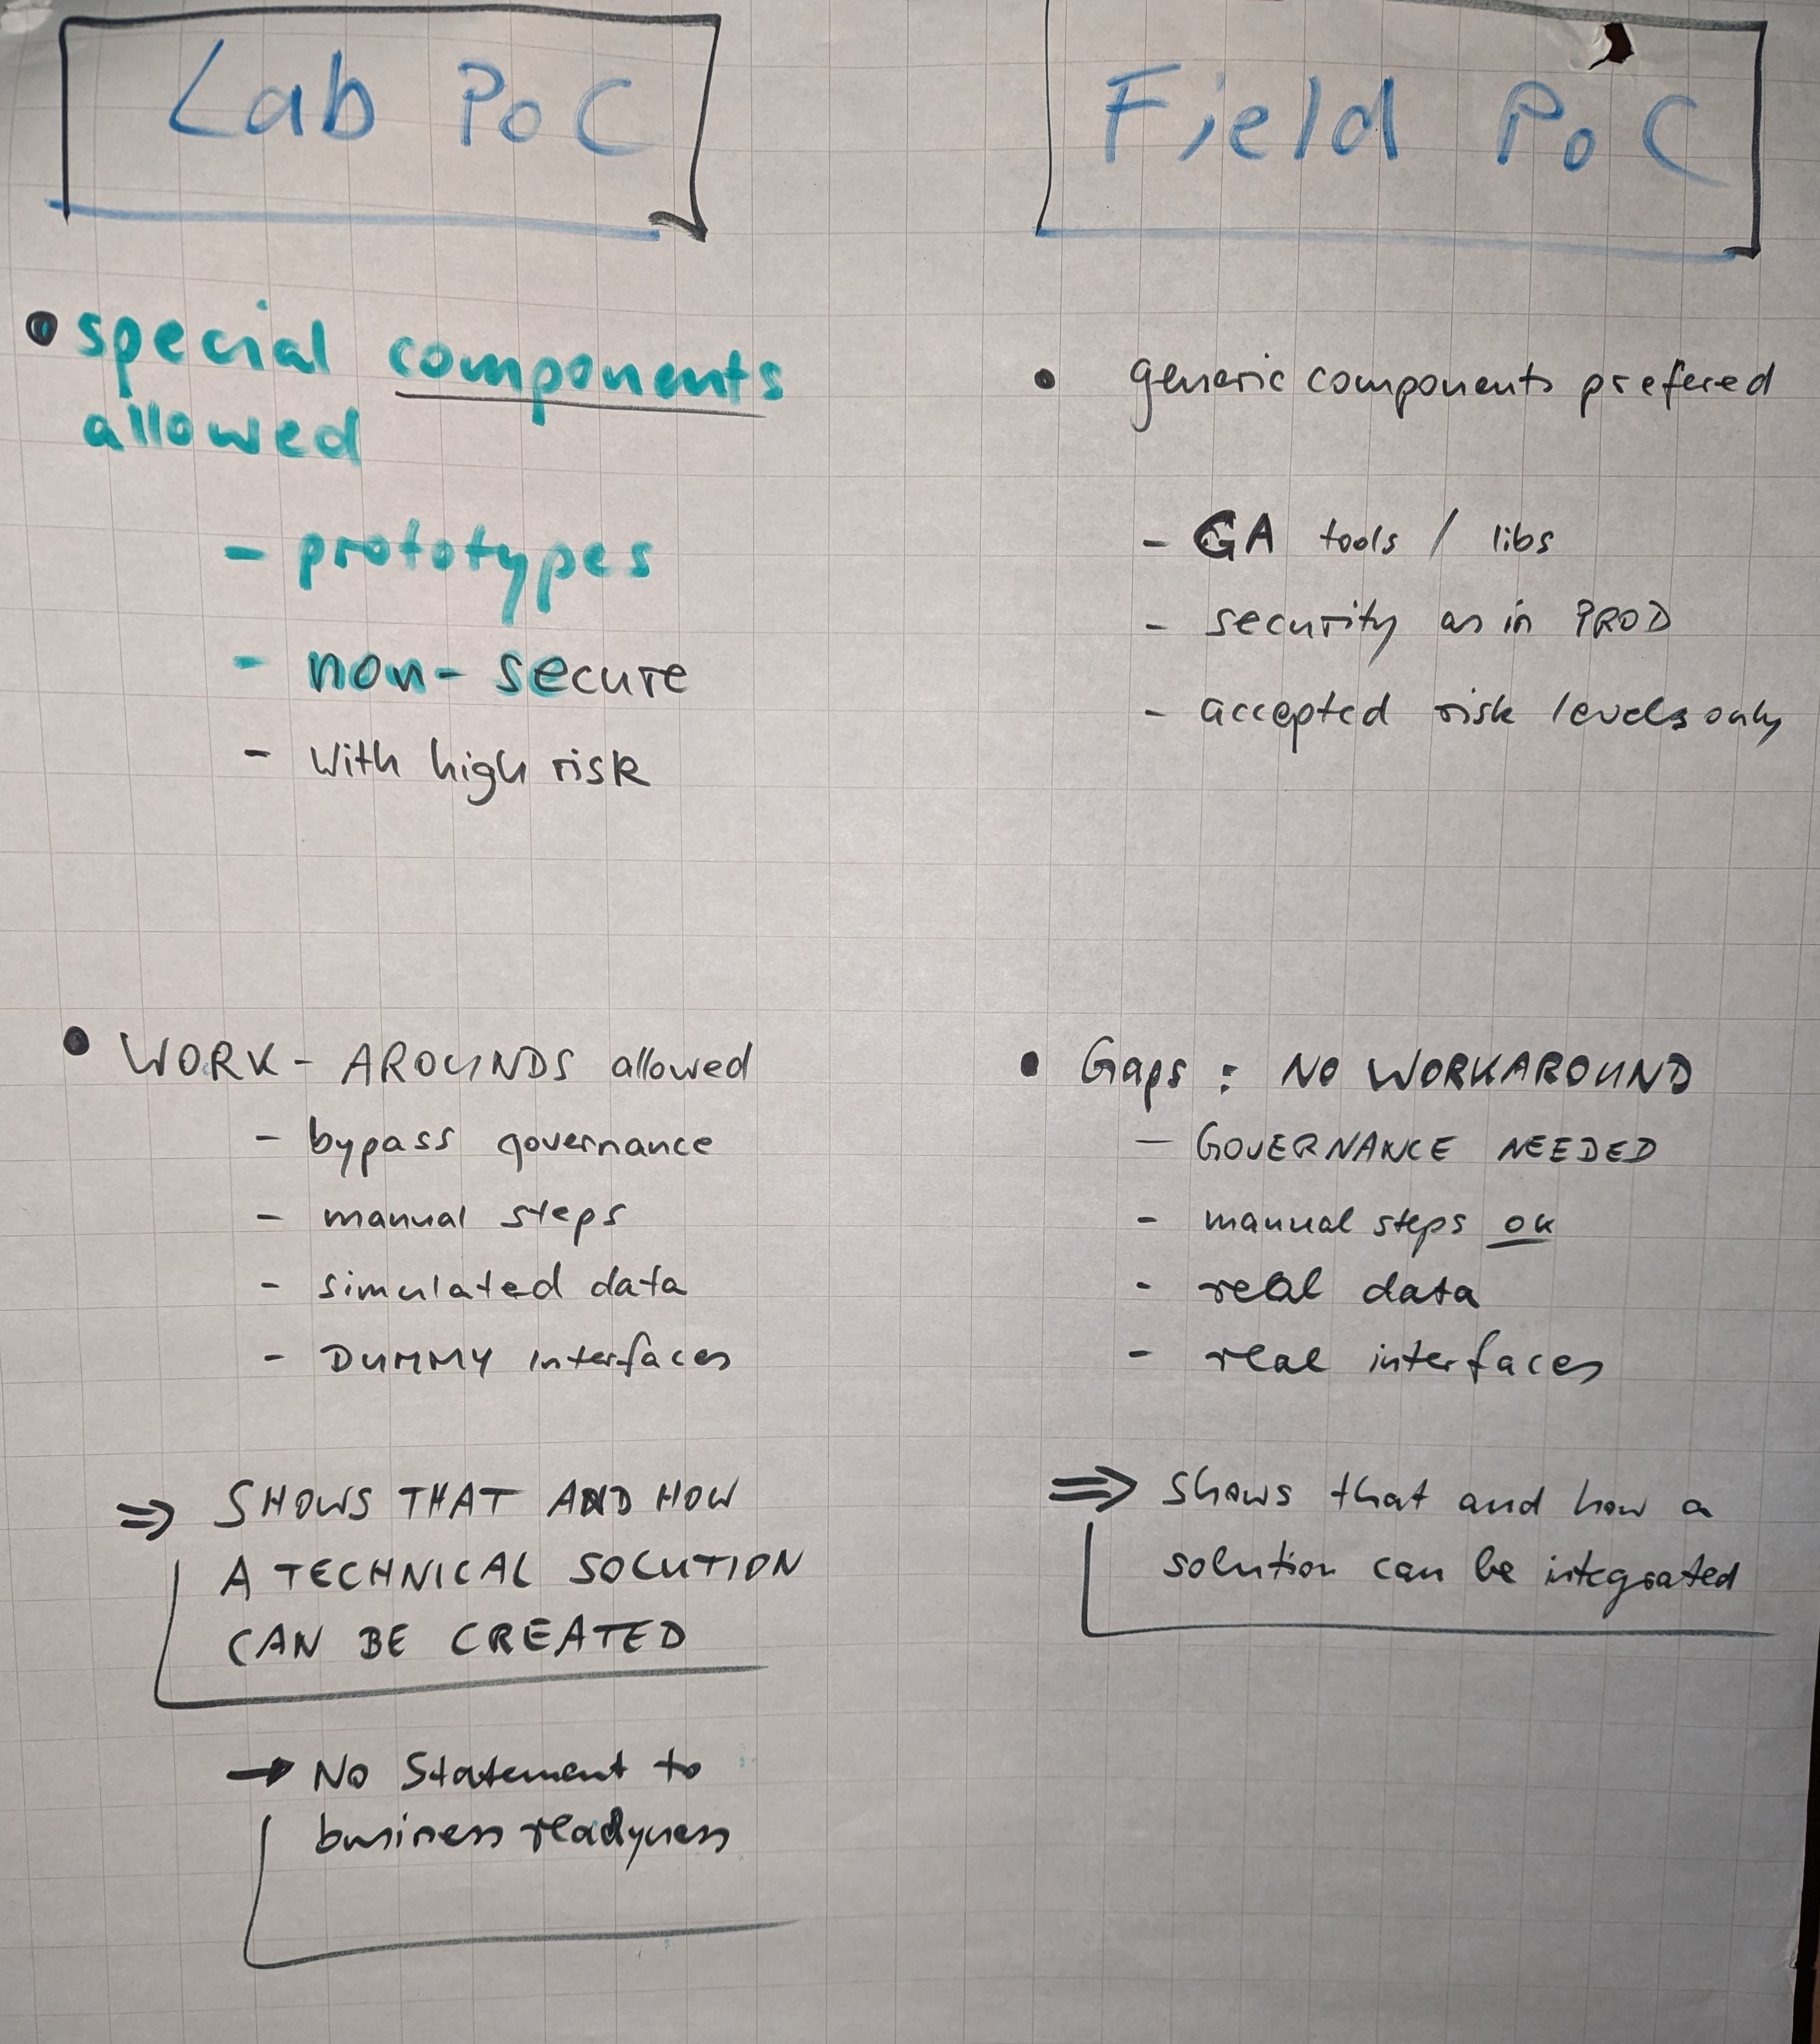 Lab PoC
• special components
allowed
- prototypes
- non-secure
- with high risk
• WORK-AROUNDS allowed
- bypass governance
- manual steps
- simulated data
- DUMMY interfaces
⇒ SHOWS THAT AND HOW
A TECHNICAL SOLUTION
CAN BE CREATED
→ No Statement to
business readyness
Field PoC
• generic components prefered
- GA tools / libs
- security as in PROD
- accepted risk levels only
• Gaps: NO WORKAROUND
- GOVERNANCE NEEDED
- manual steps ok
- real data
- real interfaces
⇒ shows that and how a
solution can be integrated